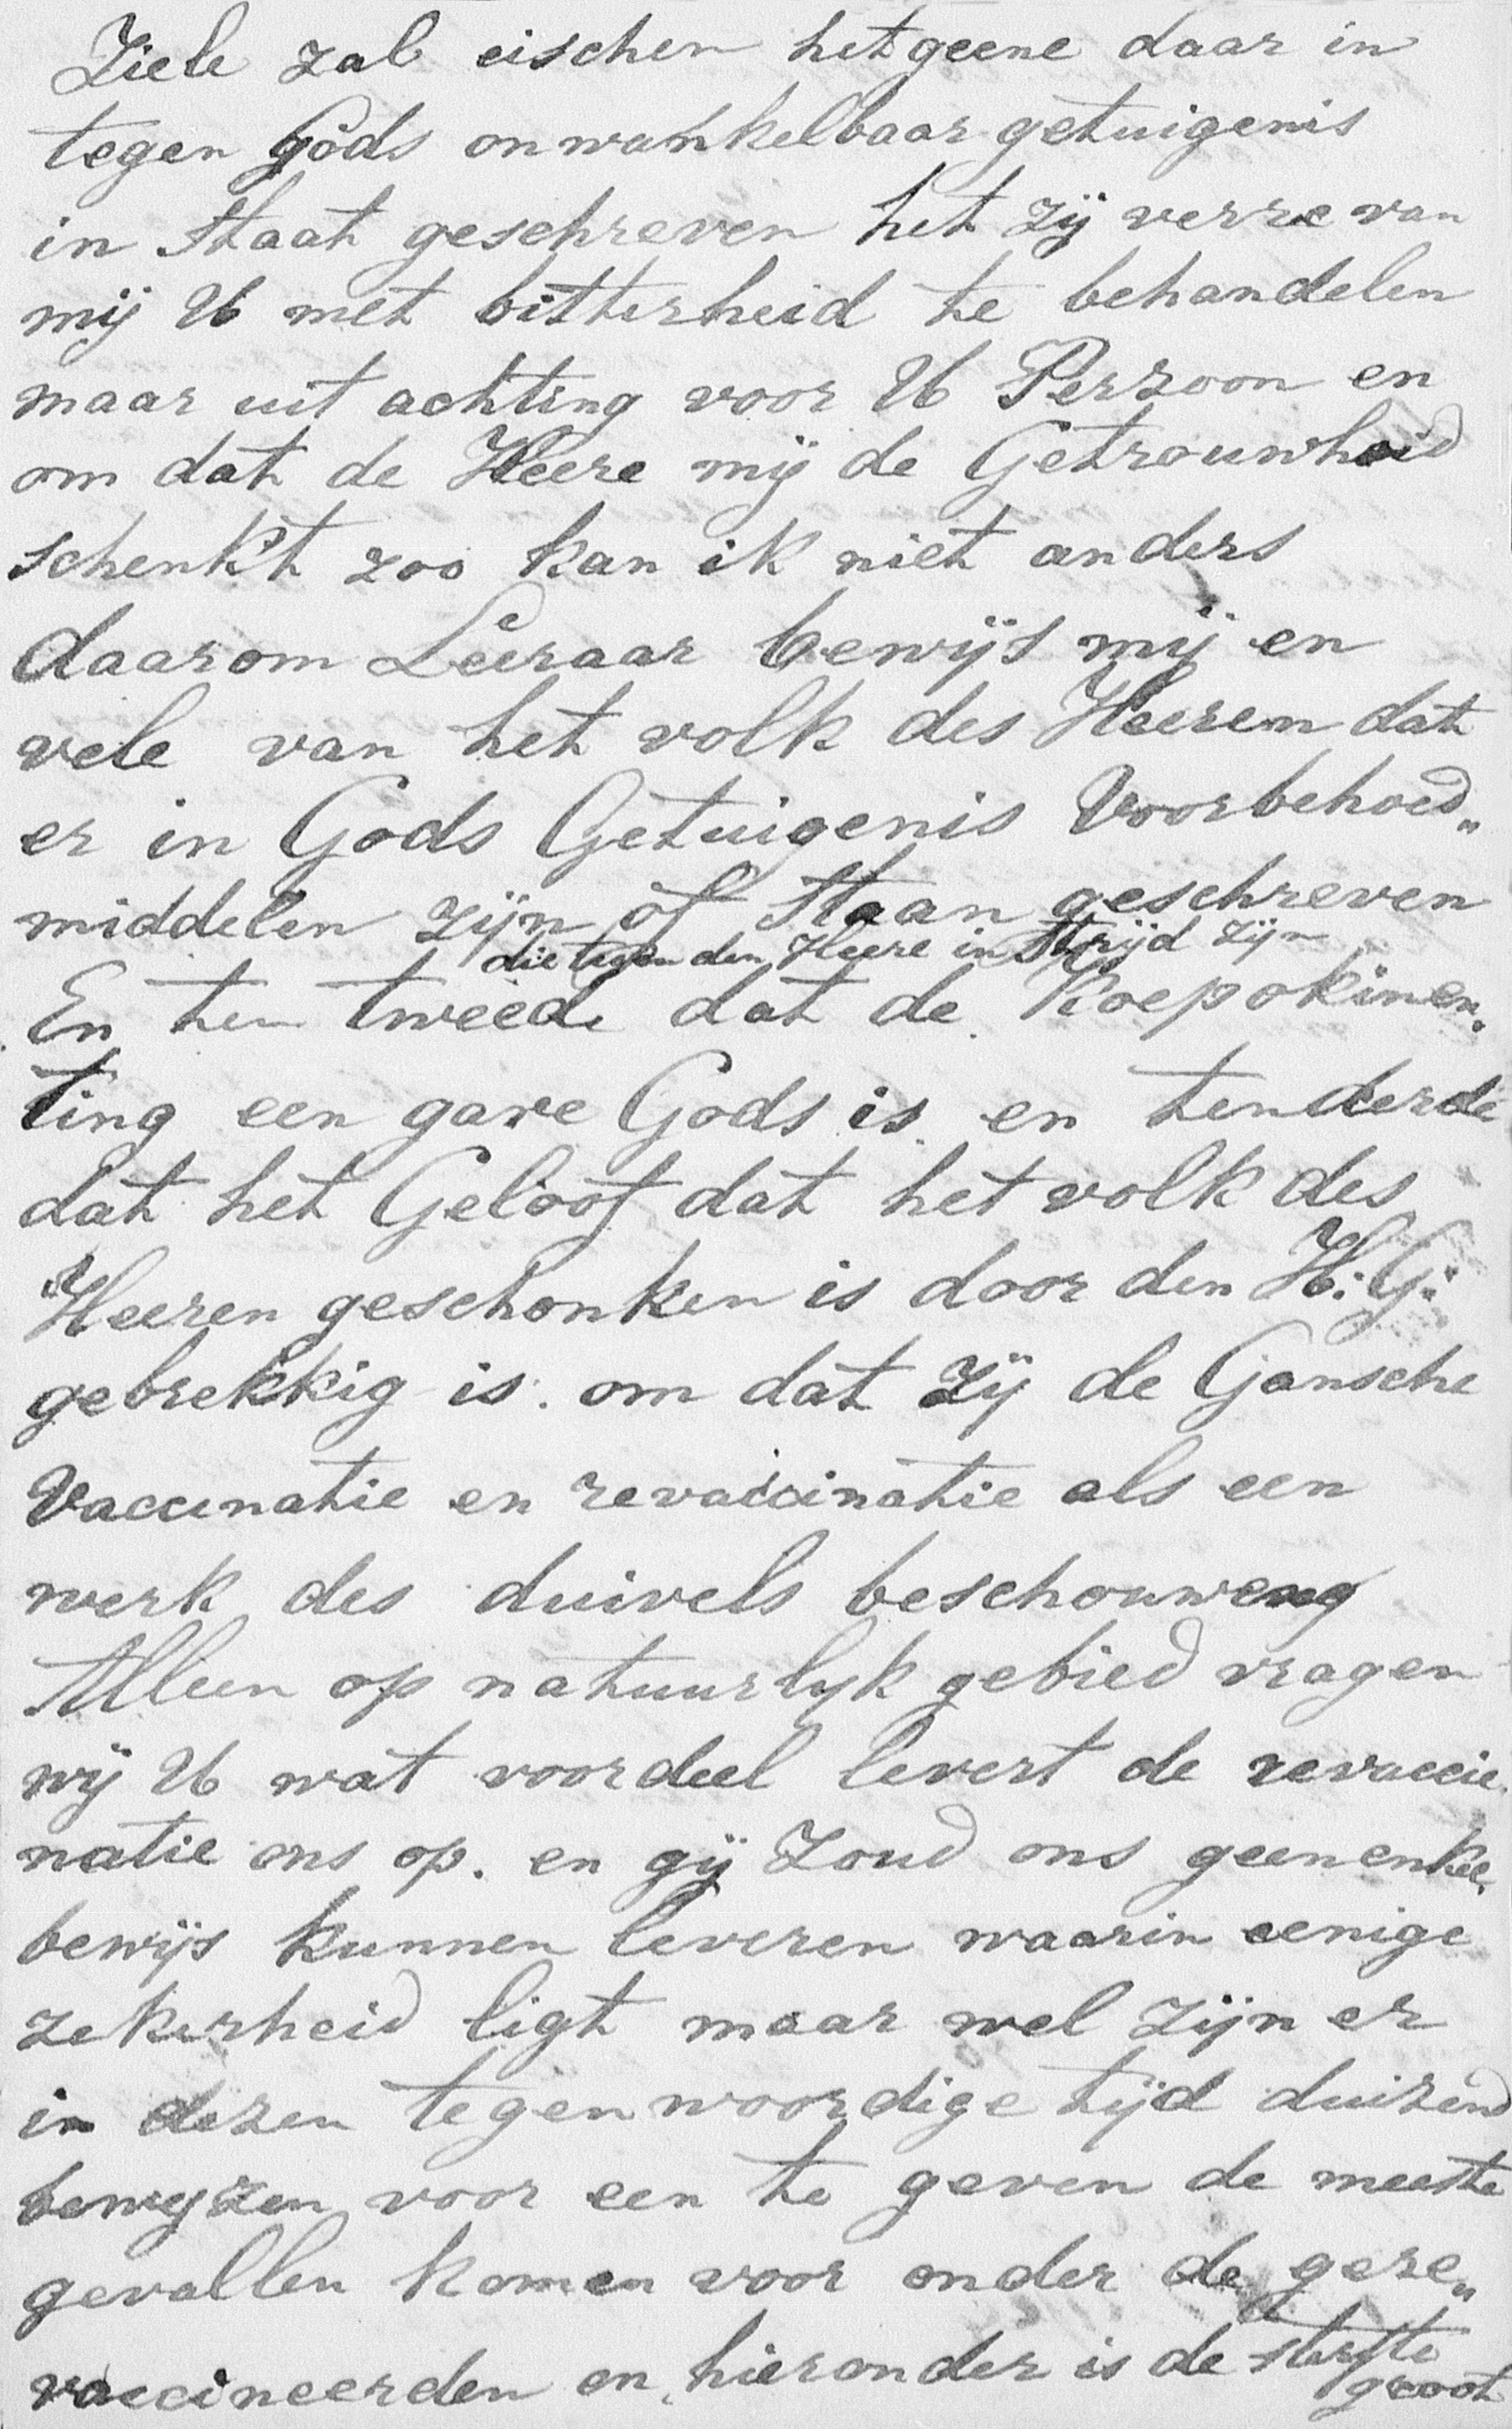 Ziele zal eischen hetgeene daar in
tegen Gods onwankelbaar getuigenis
in staat geschreven het zij verre van
mij U met bitterheid te behandelen
maar uit achting voor U Perzoon en
om dat de Heere mij de Getrouwheid
schenkt zoo kan ik niet anders
daarom Leeraar bewijs mij en
vele van het volk des Heeren dat
er in Gods Getuigenis Voorbehoed„
middelen zijn of staan geschreven
die tegen den Heere in strijd zijn
En ten tweede dat de Koepokinen„
ting een gave Gods is en tenderde
dat het Geloof dat het volk des
Heeren geschonken is door den H. G.
gebrekkig is. om dat zij de Gansche
Vaccinatie en revaccinatie als een
werk des duivels beschouweng
Alleen op natuurlyk gebied vragen
wij U wat voordeel levert de revaccie
natie ons op. en gij Zoud ons geenenkel
bewijs kunnen leveren waarin eenige
zekerheid ligt maar wel zijn er
in dezen tegenwoordige tijd duizend
bewyzen voor een te geven de meeste
gevallen komen voor onder de gere„
vaccineerden en hieronder is de sterfte
groot